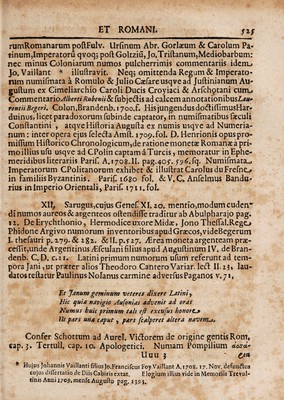 ET ROMANI. 525
rumRomanarum postFulv. Ursinum Abr. Gorlæum & Carolum Pa-
tinum,Imperatorũ qvoq; post Golzii, Jo,Tristanum,Mediobarbum:
nec minus Coloniarum numos pulcherrimis commentariis idem
Jo, Vaillant * illustravit. Neq; omittenda Regum & Imperato-
rum numismata à Romulo & Julio Cæsare usqve ad Justinianum Au-
gustum ex Cimeliarchio Caroli Ducis Croyiaci & Arschotani cum
Commentario Alberti Rubenii & subjectis ad calcem annotationibus Lau-
rentii Begeri. Colon,Brandenb. 1700.f. His jungendus doctissimus Har-
duinus, licet paradoxorum subinde captator, in numismatibus sæculi
Constantini, atqve Historia Augusta ex numis usqve ad Numeria-
num: inter opera ejus selecta Amst. 1709. fol. D. Henrionii opus pro-
missum Historico Chronologicum, de ratione monetæ Romanæ a pri-
mis illius usu ad CPolin captam à Turcis, memoratur in Ephe-
meridibus literariis Paris. A.1708.II. pag.405. 596. sq. Numismata
Imperatorum CPolitanorum exhibet & illustrat Carolus du Fresne
in familiis Byzantinis. Paris. 1680 fol. & V, C, Anselmus Bandu-
rius in Imperio Orientali, Paris. 1711. fol.
XII, Sarugus, cujus Genes. XI. 20. mentio, modum cuden-
di numos aureos & argenteos ostendisse traditur ab Abulpharajo pag.
12. De Erychthonio, Hermodice uxore Midæ, Jono Thessal. Rege,
Phidone Argivo numorum inventoribus apud Græcos, vide Begerum
T. thesauri p. 279. & 282. & II. p. 127. Ærea moneta argenteam præ-
cessit, unde Argentinus Æsculani filius apud Augustinum IV. de Bran-
denb. C, D. c.21. Latini primum numorum usum referunt ad tem-
pora Jani, ut præter alios Theodoro Cantero Variar. lect II. 23, lau-
datos testatur Paulinus Nolanus carmine adversus Paganos v. 71,
Et Janum geminum veteres dixere Latini,
Hic quia navigio Ausonias advenit ad oras
Numus huic primum tali est excusus honore
Ut pars una caput, pars scalperet altera navem.
Confer Schottum ad Aurel. Victorem de origine gentis Rom,
cap. 3. Tertull, cap. 10. Apologetici. Numam Pompilium
Uuu 3
* Hujus Johannis Vaillanti filius Jo, Franciscus Foy Vaillant A. 1708. 17. Nov. defunctus
cujus dissertatio de Diis Cabiris extat, Elogium illius vide in Memoriis Trevul-
tinis Anni 1709, mense Augusto pag. 1393.